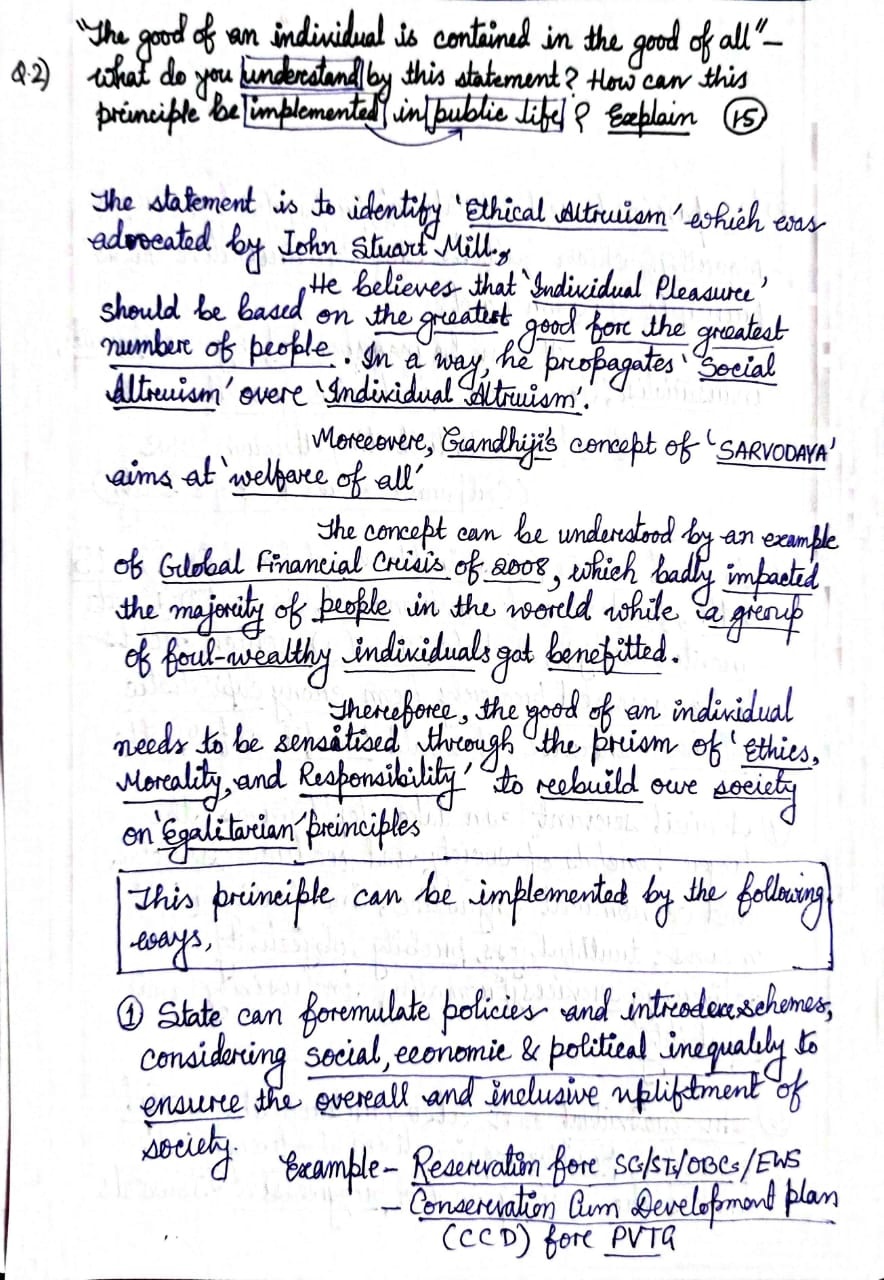 "The good of an individual is contained in the good of all"–
Q.2) what do you understand by this statement? How can this
principle be implemented in public life? Explain (15)
The statement is to identify 'Ethical Altruism' which was
advocated by John Stuart Mill,
He believes that 'Individual Pleasure'
should be based on the greatest good fore the greatest
number of people. In a way, he propagates 'Social
Altruism' overe 'Individual Altruism'.
Moreovere, Gandhiji's concept of 'SARVODAYA'
aims at 'welfare of all'
The concept can be understood by an example
of Global Financial Crisis of 2008, which badly impacted
the majority of people in the world while a group
of foul-wealthy individuals got benefitted.
Therefore, the good of an individual
needs to be sensitised through the prism of 'Ethics,
Morality, and Responsibility' to rebuild owre society
on 'Egalitarian' principles
This principle can be implemented by the following
ways,
① State can formulate policies and introduce schemes,
considering social, economic & political inequality to
ensure the overall and inclusive upliftment of
society.
Example – Reservation fore SCs/STs/OBCs/EWS
– Conservation Cum Development plan
(CCD) fore PVTG